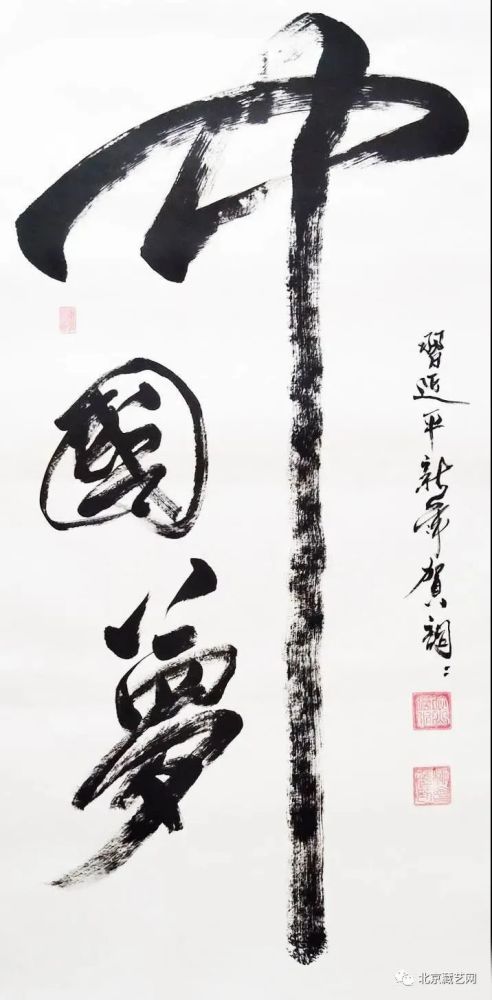 中國夢
習近平新年賀詞
北京藏艺网